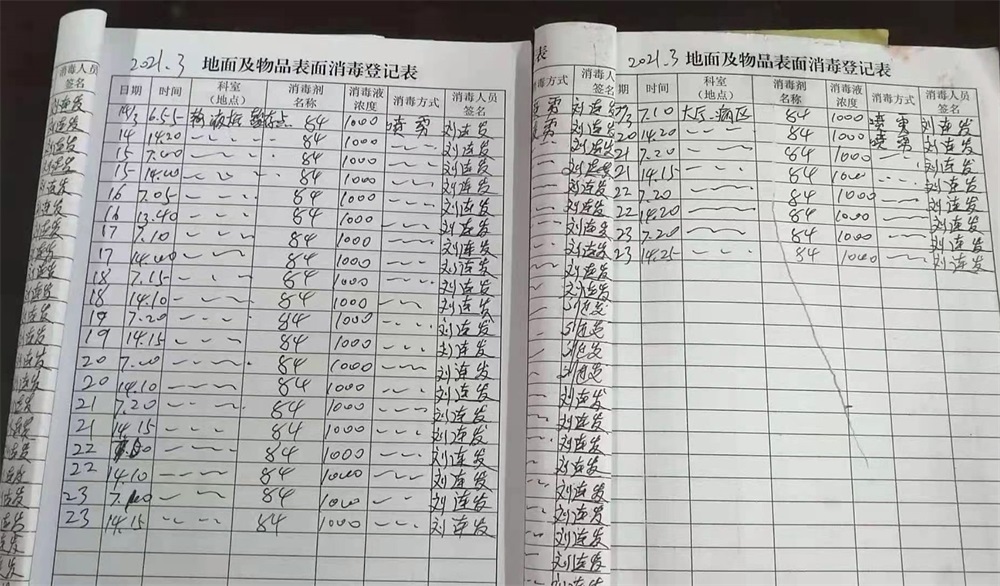 消毒人员
签名
2021.3 地面及物品表面消毒登记表
日期 时间 科室（地点） 消毒剂名称 消毒液浓度 消毒方式 消毒人员签名
14/3 6.55 84 1000 喷雾 刘连发
14 14.20 〃 84 1000 〃 刘连发
15 7.00 〃 84 1000 〃 刘连发
15 14.00 〃 84 1000 〃 刘连发
16 7.05 〃 84 1000 〃 刘连发
16 13.40 〃 84 1000 〃 刘连发
17 7.10 〃 84 1000 〃 刘连发
17 14.00 〃 84 1000 〃 刘连发
18 7.15 〃 84 1000 〃 刘连发
18 14.10 〃 84 1000 〃 刘连发
19 7.20 〃 84 1000 〃 刘连发
19 14.15 〃 84 1000 〃 刘连发
20 7.00 〃 84 1000 〃 刘连发
20 14.10 〃 84 1000 〃 刘连发
21 7.20 〃 84 1000 〃 刘连发
21 14.15 〃 84 1000 〃 刘连发
22 〃 84 1000 〃 刘连发
22 14.10 〃 84 1000 〃 刘连发
23 〃 84 1000 〃 刘连发
23 14.15 〃 84 1000 〃 刘连发
表
消毒方式 消毒人员签名
2021.3 地面及物品表面消毒登记表
日期 时间 科室（地点） 消毒剂名称 消毒液浓度 消毒方式 消毒人员签名
7.10 病区 84 1000 喷雾 刘连发
20 14.20 〃 84 1000 喷雾 刘连发
21 7.20 〃 84 1000 〃 刘连发
21 14.15 〃 84 1000 〃 刘连发
22 7.20 〃 84 1000 〃 刘连发
22 14.20 〃 84 1000 〃 刘连发
23 7.20 〃 84 1000 〃 刘连发
23 14.25 〃 84 1000 〃 刘连发